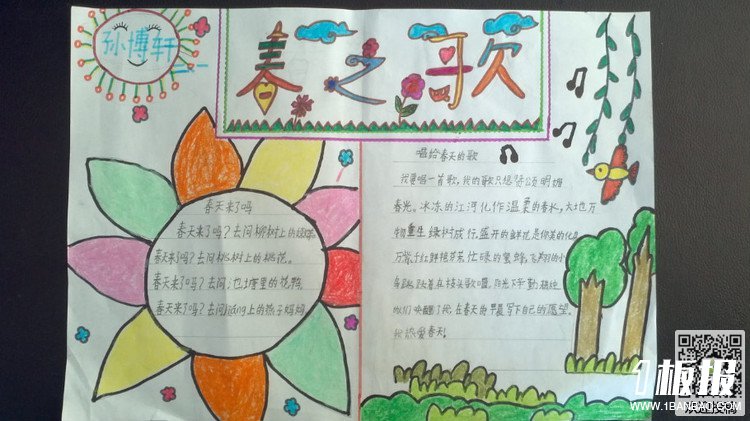 孙博轩
春之歌
春天来了吗
春天来了吗?去问柳树上的
春天来了吗?去问桃树上的桃花。
春天来了吗?去问池塘里的
春天来了吗?去问 上的燕子妈妈
唱给春天的歌
我要唱一首歌,我的歌只想 颂明媚
春光。冰冻的江河化作温柔的春水,大地万
物重生绿树成行盛开的鲜花是你美的化身
万紫千红鲜艳芬芳忙碌的蜜蜂,飞翔的小
鸟跳跃着在枝头歌唱,阳光下辛勤
你们唤醒了我,在春天的早晨写下自己的愿望。
我热爱春天。
1板报
WWW.1BANBAO.COM